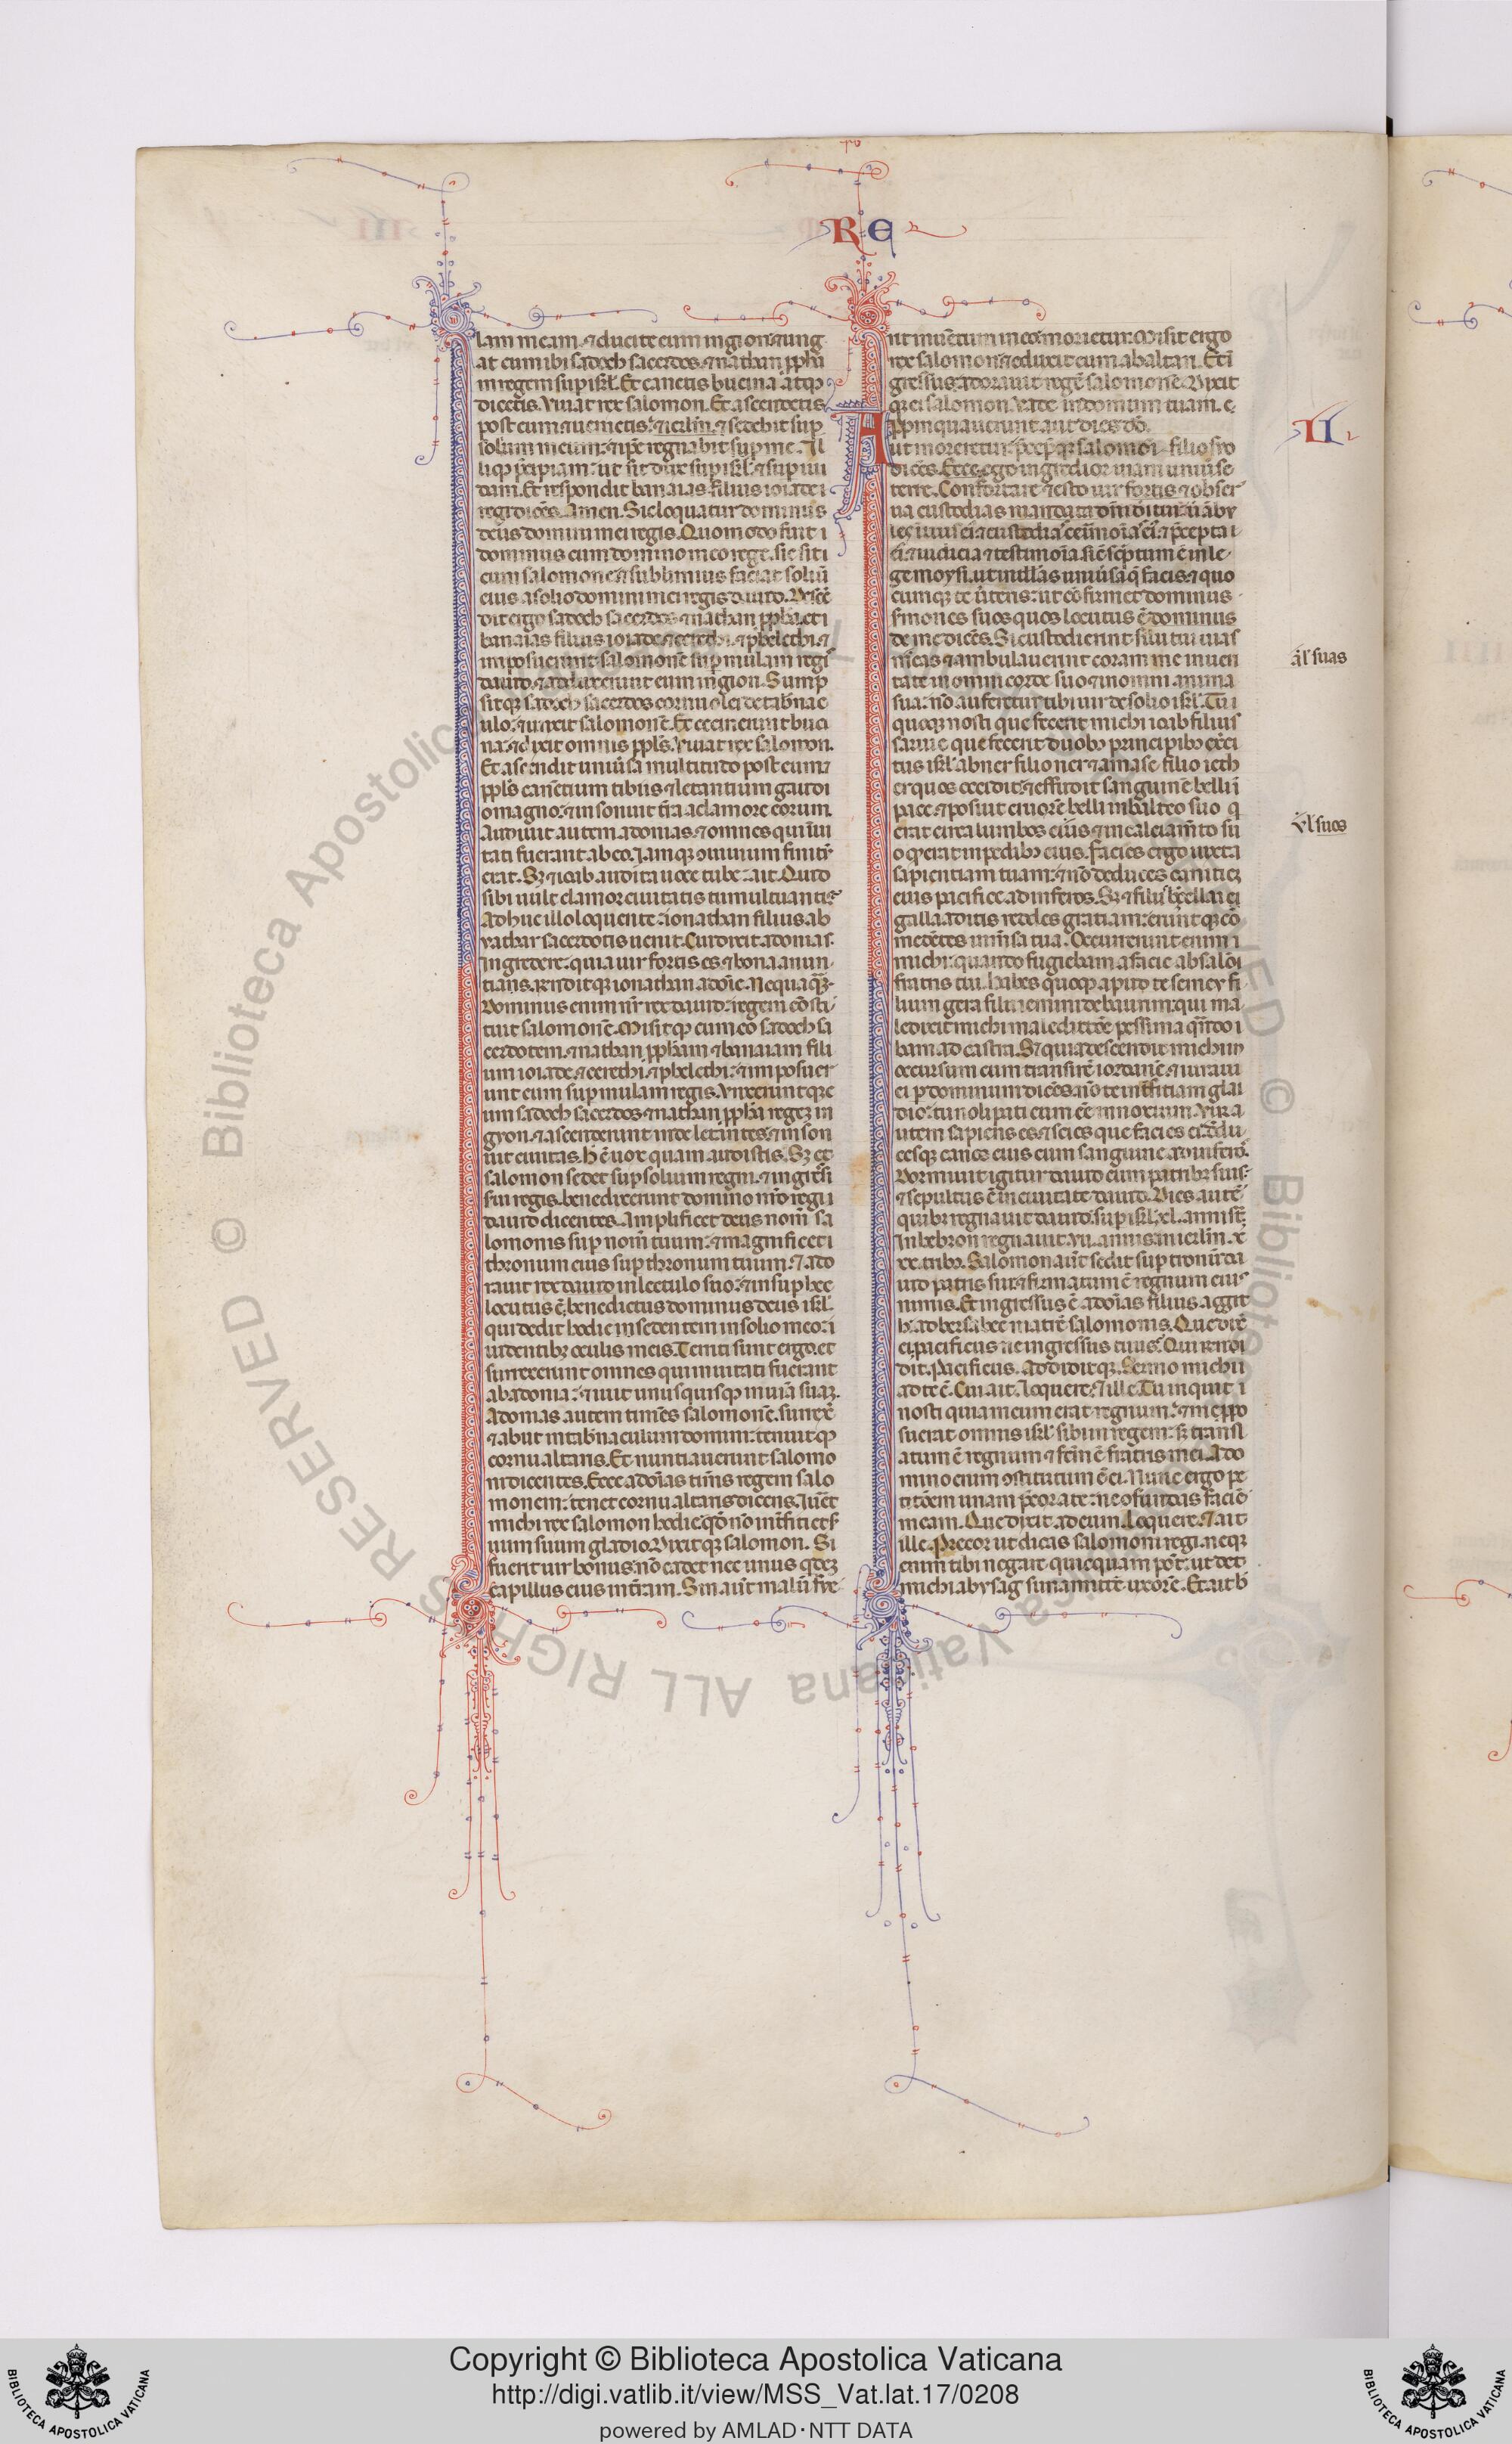 RE
lam meam. ⁊ ducite eum in gion. ⁊ ung
at eum ibi sadoch sacerdos. ⁊ nathan ppha
in regem sup isrl. Et canetis bucina atqꝫ
dicetis. Viuat rex salomon. Et ascendetis
post eum ⁊ uenietis. ⁊ sedebit sup
solium meum: ⁊ ipse regnabit sup me. Il
liqꝫ pcipiam: ut sit dux sup isrl ⁊ sup iu
dam. Et respondit banaias filius ioiade
regi dicēs. Amen. Sic loquatur dominus
deus domini mei regis. Quomodo fuit
dominus cum domino meo rege. sic sit
cum salomone ⁊ sublimius faciat soliū
eius a solio domini mei regis dauid. Descē
dit ergo sadoch sacerdos ⁊ nathan ppha et
banaias filius ioiade ⁊ cerethi. ⁊ phelethi. ⁊
imposuerunt salomonē sup mulam regis
dauid. ⁊ adduxerunt eum in gion. Sump
sitqꝫ sadoch sacerdos cornu olei de tabnac
ulo. ⁊ unxit salomonē. Et cecinerunt buci
na: ⁊ dixit omnis ppls. Viuat rex salomon.
Et ascendit uniūsa multitudo post eum ⁊
ppls canētium tibiis ⁊ letantium gaudi
o magno: ⁊ insonuit tra a clamore eorum.
Audiuit autem adonias. ⁊ omnes qui inui
tati fuerant ab eo. Iamqꝫ conuiuium finitū
erat. Sꝫ ⁊ ioab audita uoce tube: ait. Quid
sibi uult clamor ciuitatis tumultuantis
Adhuc illo loquente: ionathan filius ab
yathar sacerdotis uenit. Cui dixit adonias.
Ingredere: quia uir fortis es ⁊ bona annun
tians. Rnditqꝫ ionathan adonie. Nequaqꝫ.
Dominus enim nr rex dauid: regem cōsti
tuit salomonē. Misitqꝫ cum eo sadoch sa
cerdotem. ⁊ nathan ppham ⁊ banaiam fili
um ioiade. ⁊ cerethi. ⁊ phelethi: ⁊ imposuer
unt eum sup mulam regis. Vnxeruntqꝫ e
um sadoch sacerdos ⁊ nathan ppha regeꝫ in
gyon. ⁊ ascenderunt inde letantes. ⁊ inson
uit ciuitas. h̄ ē uox quam audistis. Sꝫ et
salomon sedet sup solium regni. ⁊ ingressi
sui regis. benedixerunt domino nro regi
dauid dicentes. Amplificet deus nomē sa
lomonis sup nomē tuum: ⁊ magnificet
thronum eius sup thronum tuum. ⁊ ado
rauit rex dauid in lectulo suo: ⁊ insup hec
locutus ē. benedictus dominus deus isrl.
qui dedit hodie sedentem in solio meo:
uidentibꝫ oculis meis. Territi sunt ergo. et
surrexerunt omnes qui inuitati fuerant
ab adonia: ⁊ iuit unusquisqꝫ in uiā suaꝫ.
Adonias autem timēs salomonē. surrexit
⁊ abiit in tabnaculum domini: tenuitqꝫ
cornu altaris. Et nuntiauerunt salomo
ni dicentes. Ecce adonias timēs regem salo
monem: tenet cornu altaris dicens. Iuret
michi rex salomon hodie qd nō intficiet s
uum suum gladio. Dixitqꝫ salomon. Si
fuerit uir bonus: nō cadet nec unus qdeꝫ
capillus eius in tram. Sin aut malū fue
rit inuētum in eo: morietur. Misit ergo
rex salomon ⁊ eduxit eum ab altari. Et i
gressus: adorauit regē salomonē. Dixit
qꝫ ei salomon. Vade in domum tuam.
Appinquauerunt aut dies dd
ut moreretur: pcepitqꝫ salomoni filio suo
dicēs. Ecce ego ingredior uiam uniūse
terre. Confortare ⁊ esto uir fortis ⁊ obser
ua custodias mandata dni di tui: ut ābu
les in uiis ei. ⁊ custodias cerimonias ei. ⁊ pcepta
ei. ⁊ iudicia ⁊ testimonia. sic scptum ē in le
ge moysi. ut intelligas uniūsa q̄ facis. ⁊ quo
cumqꝫ te uerteris: ut cōfirmet dominus
smones suos quos locutus ē dominus
de me dicēs. Si custodierint filii tui uias
meas ⁊ ambulauerint coram me in ueri
tate in omni corde suo ⁊ in omni anima
sua: nō auferetur tibi uir de solio isrl. Tu
quoqꝫ nosti que fecerit michi ioab filius
saruie que fecerit duobꝫ principibꝫ exci
tus isrl abner filio ner ⁊ amase filio ieth
er quos occidit: ⁊ effudit sanguinē belli i
pace. ⁊ posuit cruorē belli in balteo suo q
erat circa lumbos eius ⁊ in calciamto su
o qd erat in pedibꝫ eius. facies ergo iuxta
sapientiam tuam: ⁊ nō deduces canitieꝫ
eius pacifice ad inferos. Sꝫ ⁊ filiis berzellai
galaaditis reddes gratiam: eruntqꝫ cō
medētes in mēsa tua. Occurrerunt enim
michi: quando fugiebam a facie absalon
fratris tui. Habes quoqꝫ apud te semey fi
lium gera filii iemini de baurim: qui ma
ledixit michi maledictōe pessima qn̄do i
bam ad castra. Sꝫ quia descendit michi in
occursum cum transirē iordanē ⁊ iuraui
ei p dominum dicēs: nō te intficiam gla
dio: tu noli pati eum ēe innoxium. Vir a
utem sapiens es. ⁊ scies que facies ei. dedu
cesqꝫ canos eius cum sanguine ad infros.
Dormiuit igitur dauid cum patribꝫ suis:
⁊ sepultus ē in ciuitate dauid. Dies autē
quibꝫ regnauit dauid sup isrl. xl. anni st.
In hebron regnauit. vii. annis: in ierlm. x
xx. tribꝫ. Salomon aut sedit sup tronū da
uid patris sui: ⁊ firmatum ē regnum eius
nimis. Et ingressus ē adonias filius aggit
h ad bersabee matrē salomonis. Que dixit
ei. pacificus ne ingressus tuus. Qui rndi
dit. Pacificus. Addiditqꝫ. Sermo michi
ad te ē. Cui ait. Loquere. ⁊ ille. Tu inquit
nosti quia meum erat regnum: ⁊ me ppo
suerat omnis isrl sibi in regem: sꝫ transl
atum ē regnum ⁊ fcm ē fratris mei. A do
mino enim cstitutum ē ei. Nunc ergo pe
titōem unam pcor a te: ne cfundas faciē
meam. Que dixit ad eum. Loquere. ⁊ ait
ille. Precor ut dicas salomoni regi. neqꝫ
enim tibi negare quicquam pōt: ut det
michi abysag sunamitē uxorē. Et ait b
II
al' suas
Vl' suos
Copyright © Biblioteca Apostolica Vaticana
http://digi.vatlib.it/view/MSS_Vat.lat.17/0208
powered by AMLAD·NTT DATA
BIBLIOTECA APOSTOLICA VATICANA
BIBLIOTECA APOSTOLICA VATICANA
© Biblioteca Apostolica Vaticana ALL RIGHTS RESERVED